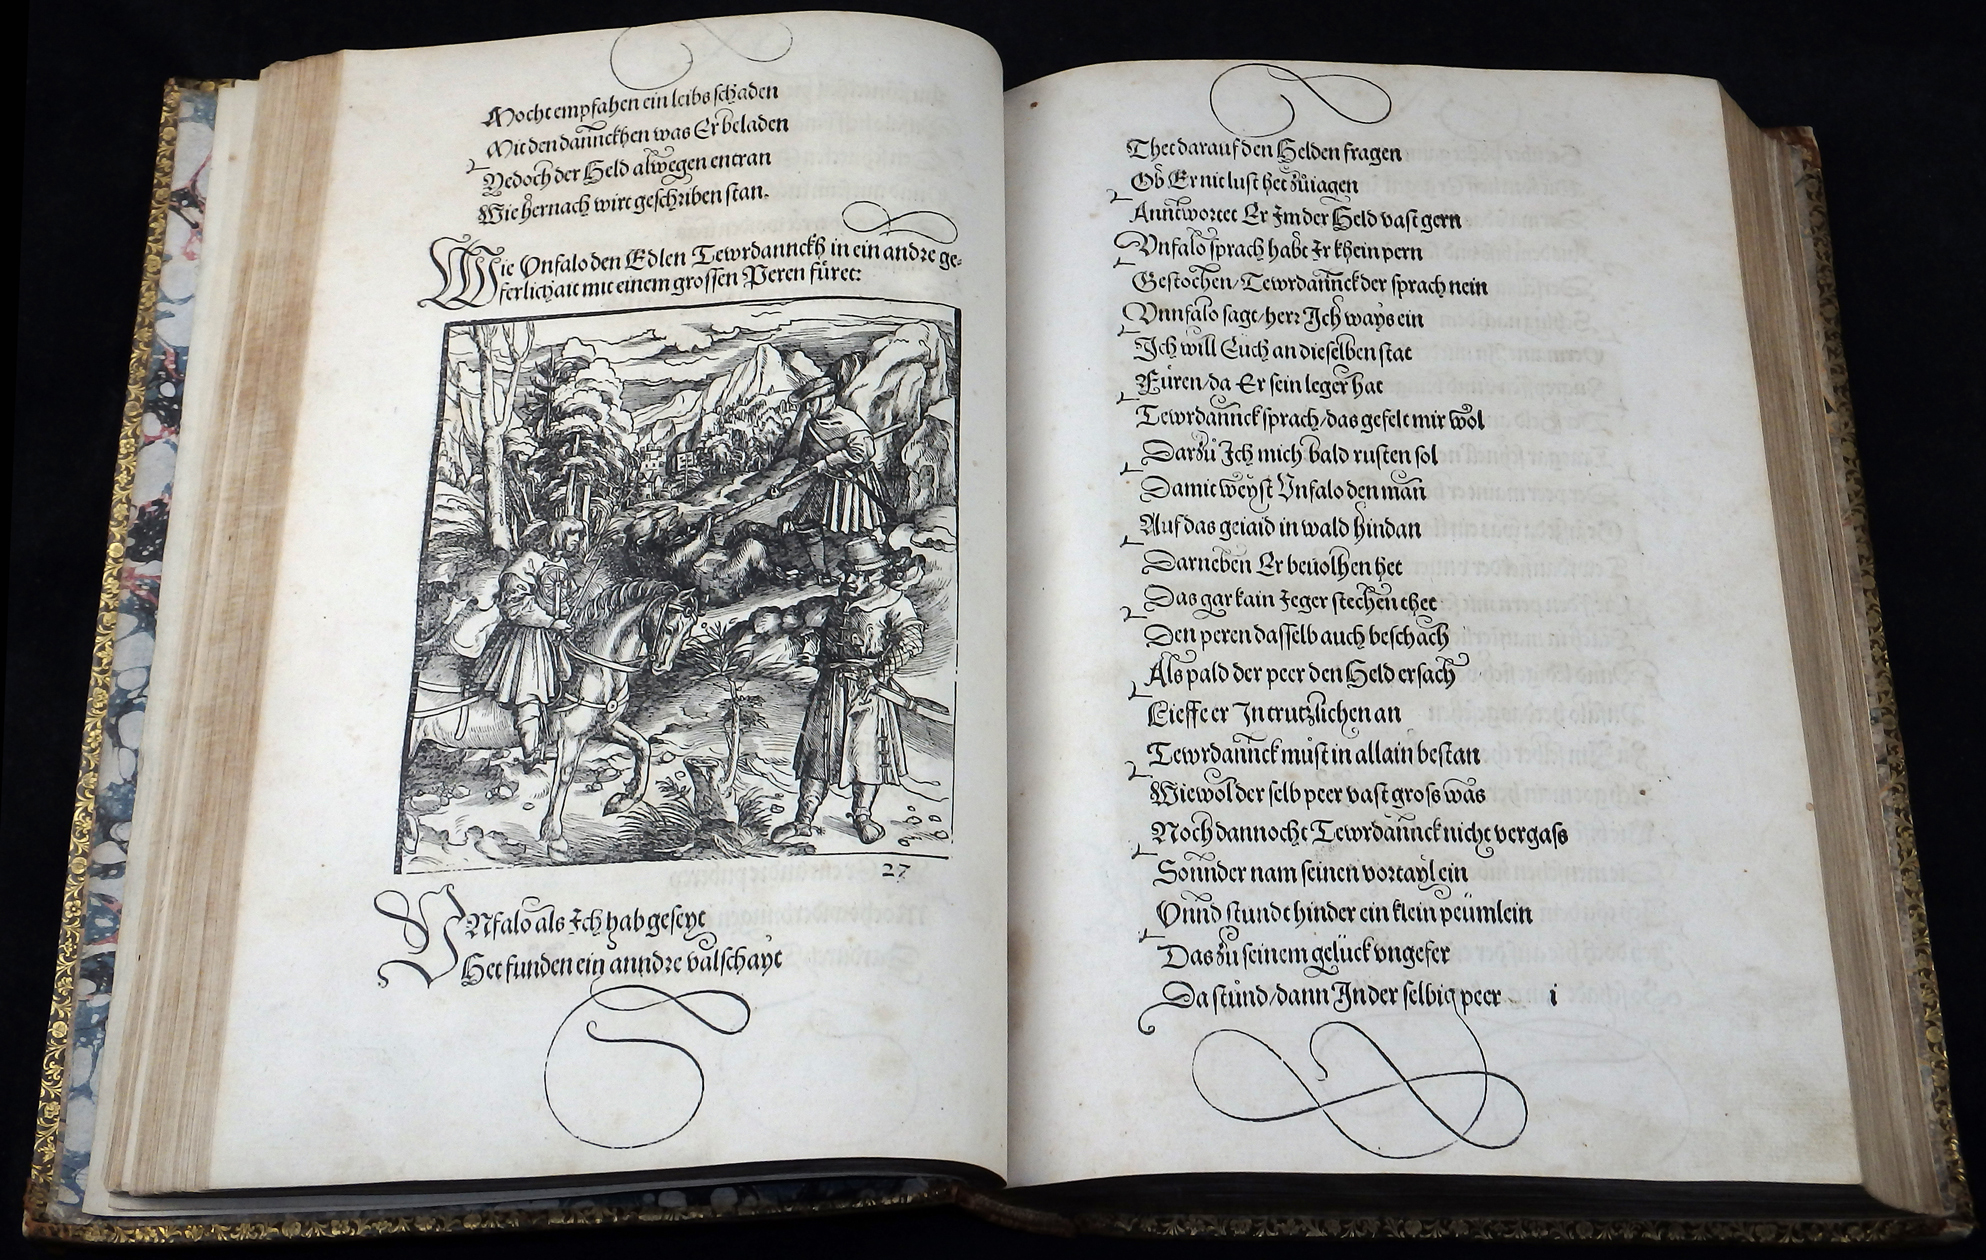 Mocht empfahen ein leibs schaden
Mit den dannckhen was Er beladen
Yedoch der Held alwegen entran
Wie hernach wirt geschriben stan.
Wie Vnfalo den Edlen Tewrdannckh in ein andre ge-
ferlichait mit einem grossen Peren füret:
27
VNfalo als Ich hab geseyt
Het funden ein anndre valschayt
Thet darauf den Helden fragen
Ob Er nit lust het zů iagen
Anntwortet Er Im der Held vast gern
Vnfalo sprach habt Ir khein pern
Gestochen/Tewrdannck der sprach nein
Vnnfalo sagt/herr Ich ways ein
Ich will Euch an dieselben stat
Füren/da Er sein leger hat
Tewrdannck sprach/das gefelt mir wol
Darzů Ich mich bald rusten sol
Damit weyst Vnfalo den man
Auf das geiaid in wald hindan
Darneben Er beuolhen het
Das gar kain Jeger stechen thet
Den peren dasselb auch beschach
Als pald der peer den Held ersach
Lieffe er In trutzlichen an
Tewrdannck můst in allain bestan
Wiewol der selb peer vast gross was
Noch dannocht Tewrdannck nicht vergass
Sonnder nam seinen vortayl ein
Vnnd stund hinder ein klein peümlein
Das zů seinem gelück vngefer
Da stůnd/dann In der selbig peer i